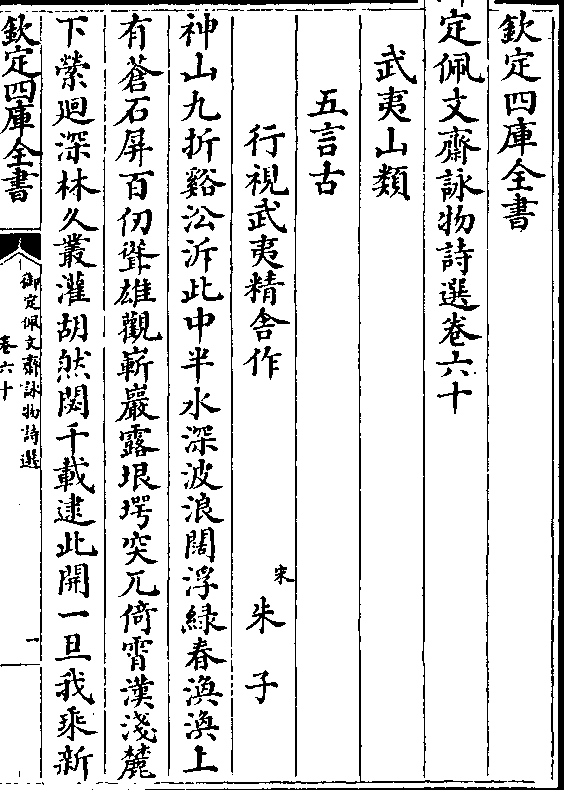 欽定四庫全書
定佩文齋詠物詩選卷六十
武夷山類
五言古
行視武夷精舍作
宋
朱子
神山九折谿㳂泝此中半水深波浪闊浮綠春渙渙上
有蒼石屏百仞聳雄觀嶄巖露垠堮突兀倚霄漢淺麓
下縈廻深林久叢灌胡然閟千載逮此開一旦我乘新
欽定四庫全書
御定佩文齋詠物詩選
卷六十
一